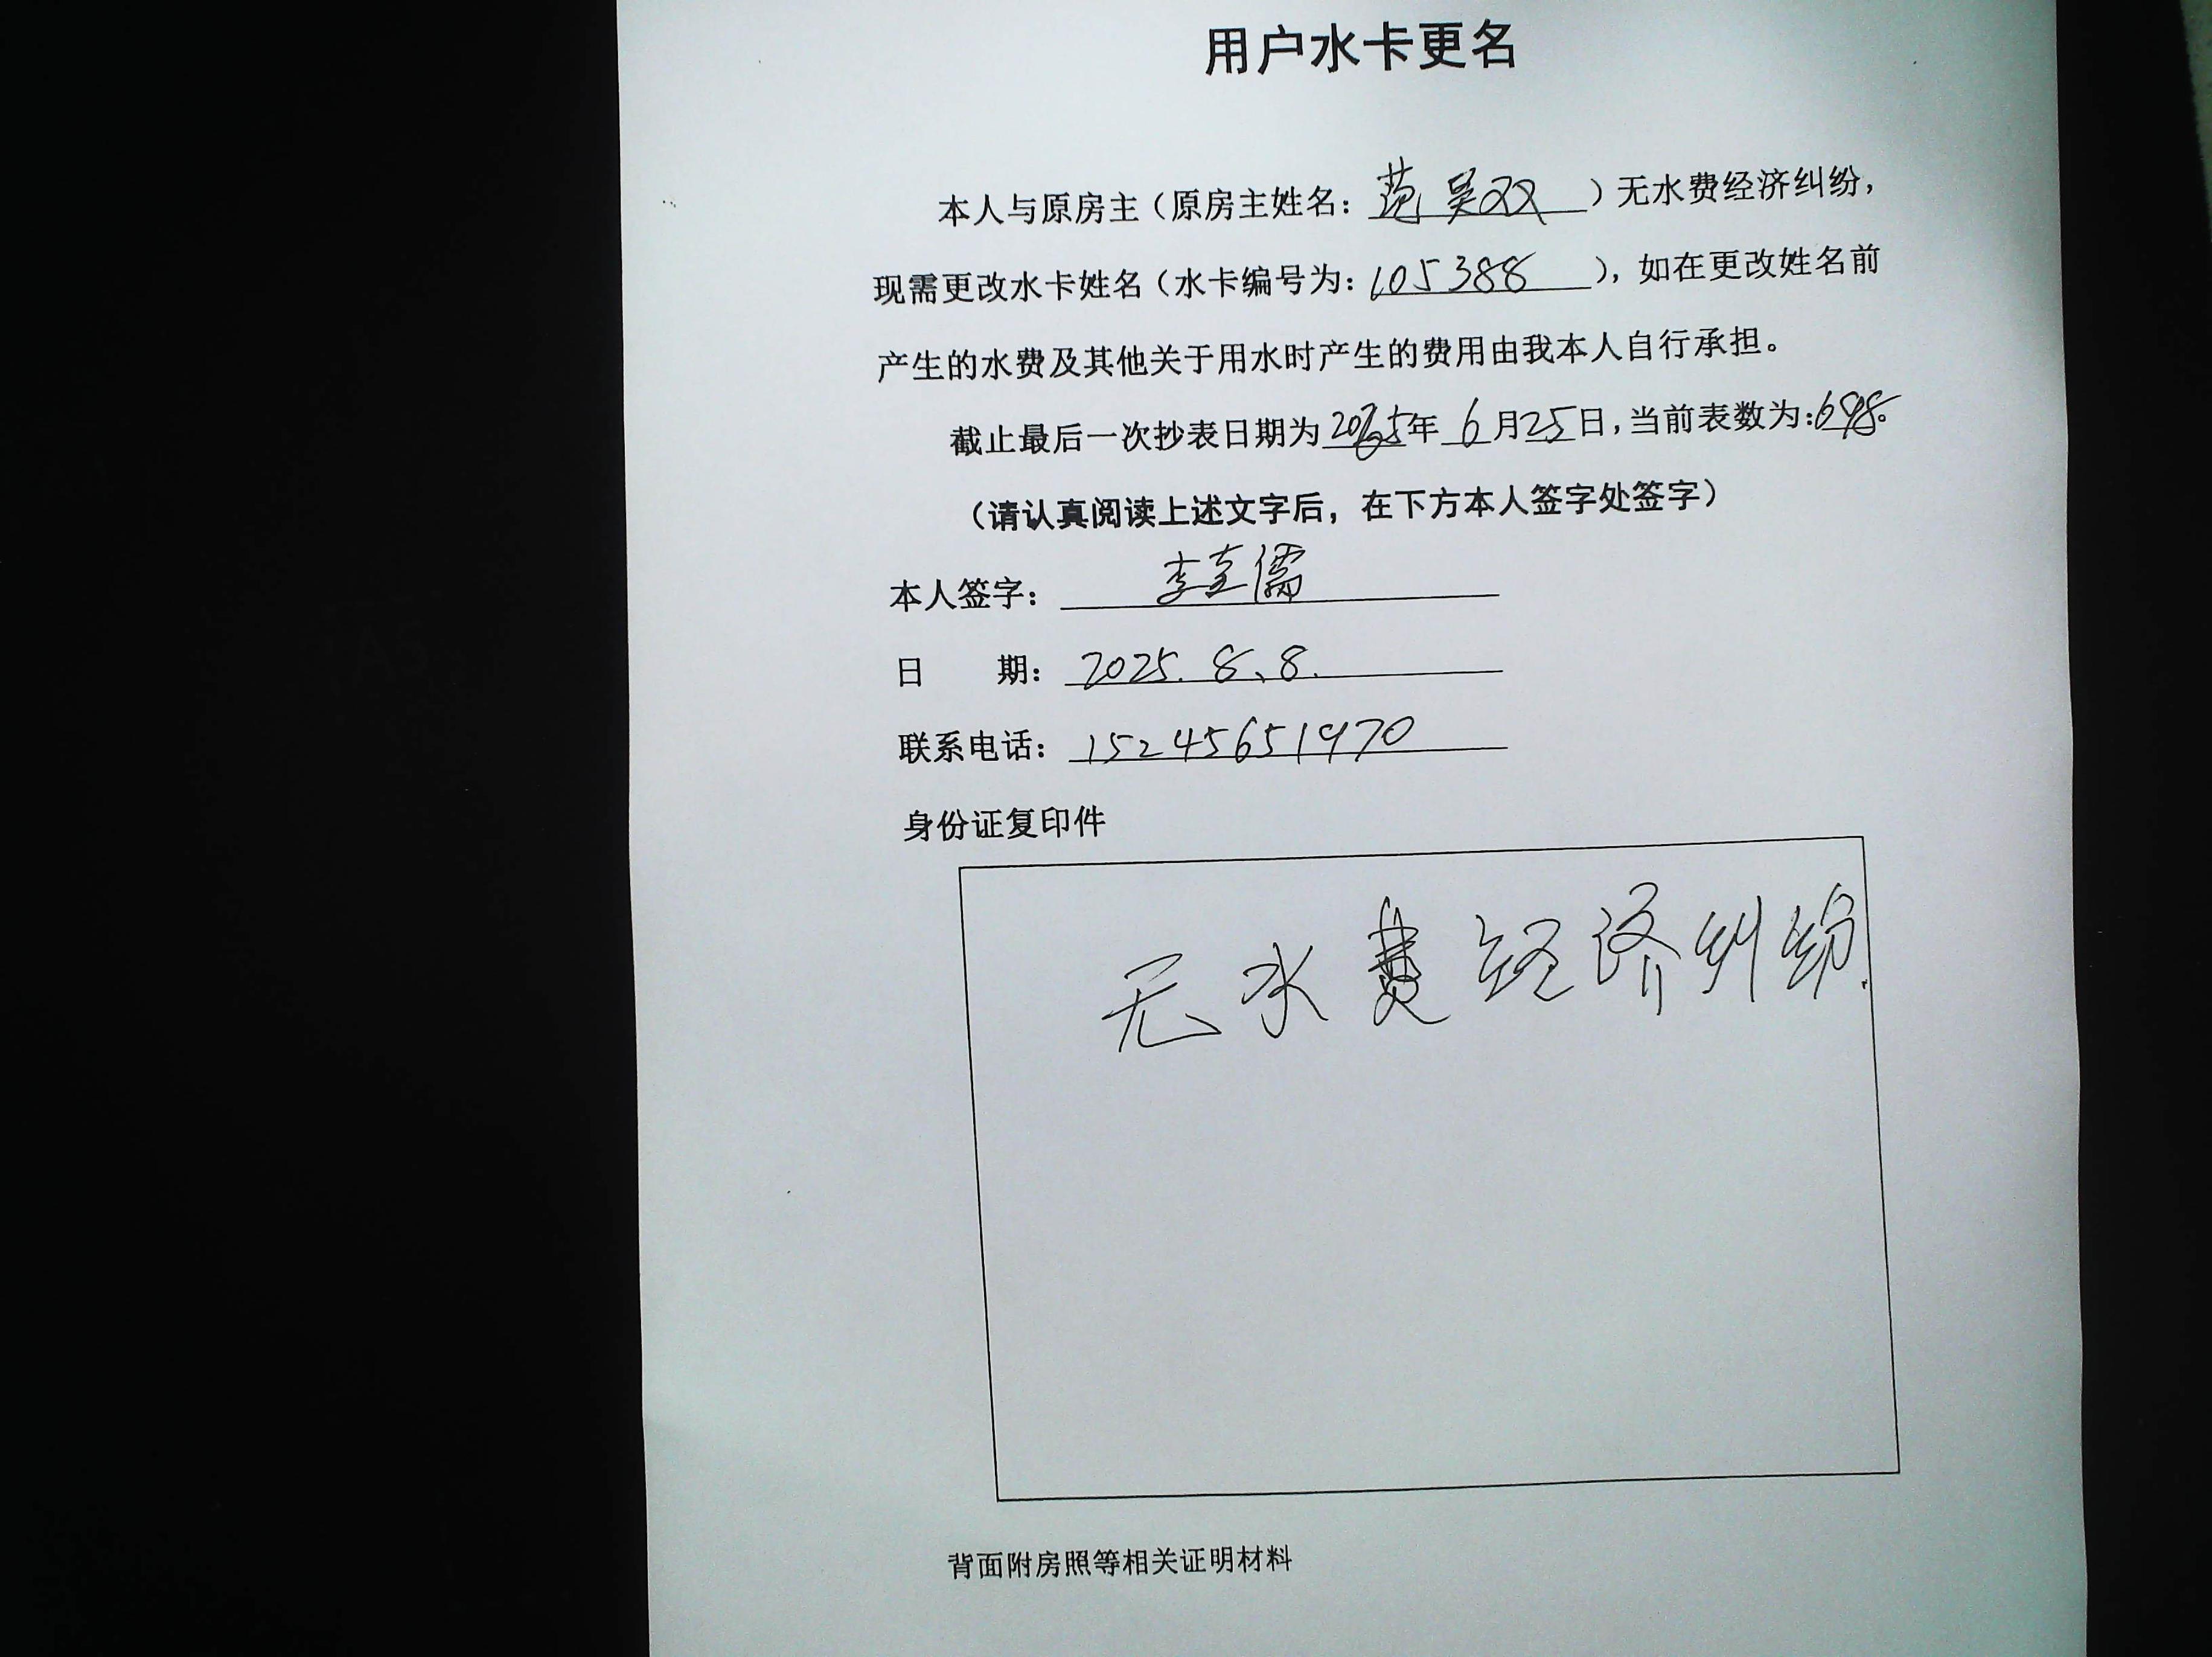 用户水卡更名
本人与原房主（原房主姓名：范吴双）无水费经济纠纷，
现需更改水卡姓名（水卡编号为：105388），如在更改姓名前
产生的水费及其他关于用水时产生的费用由我本人自行承担。
截止最后一次抄表日期为2025年6月25日，当前表数为：698。
（请认真阅读上述文字后，在下方本人签字处签字）
本人签字：李至儒
日 期：2025.8、8.
联系电话：15245651970
身份证复印件
无水费经济纠纷.
背面附房照等相关证明材料